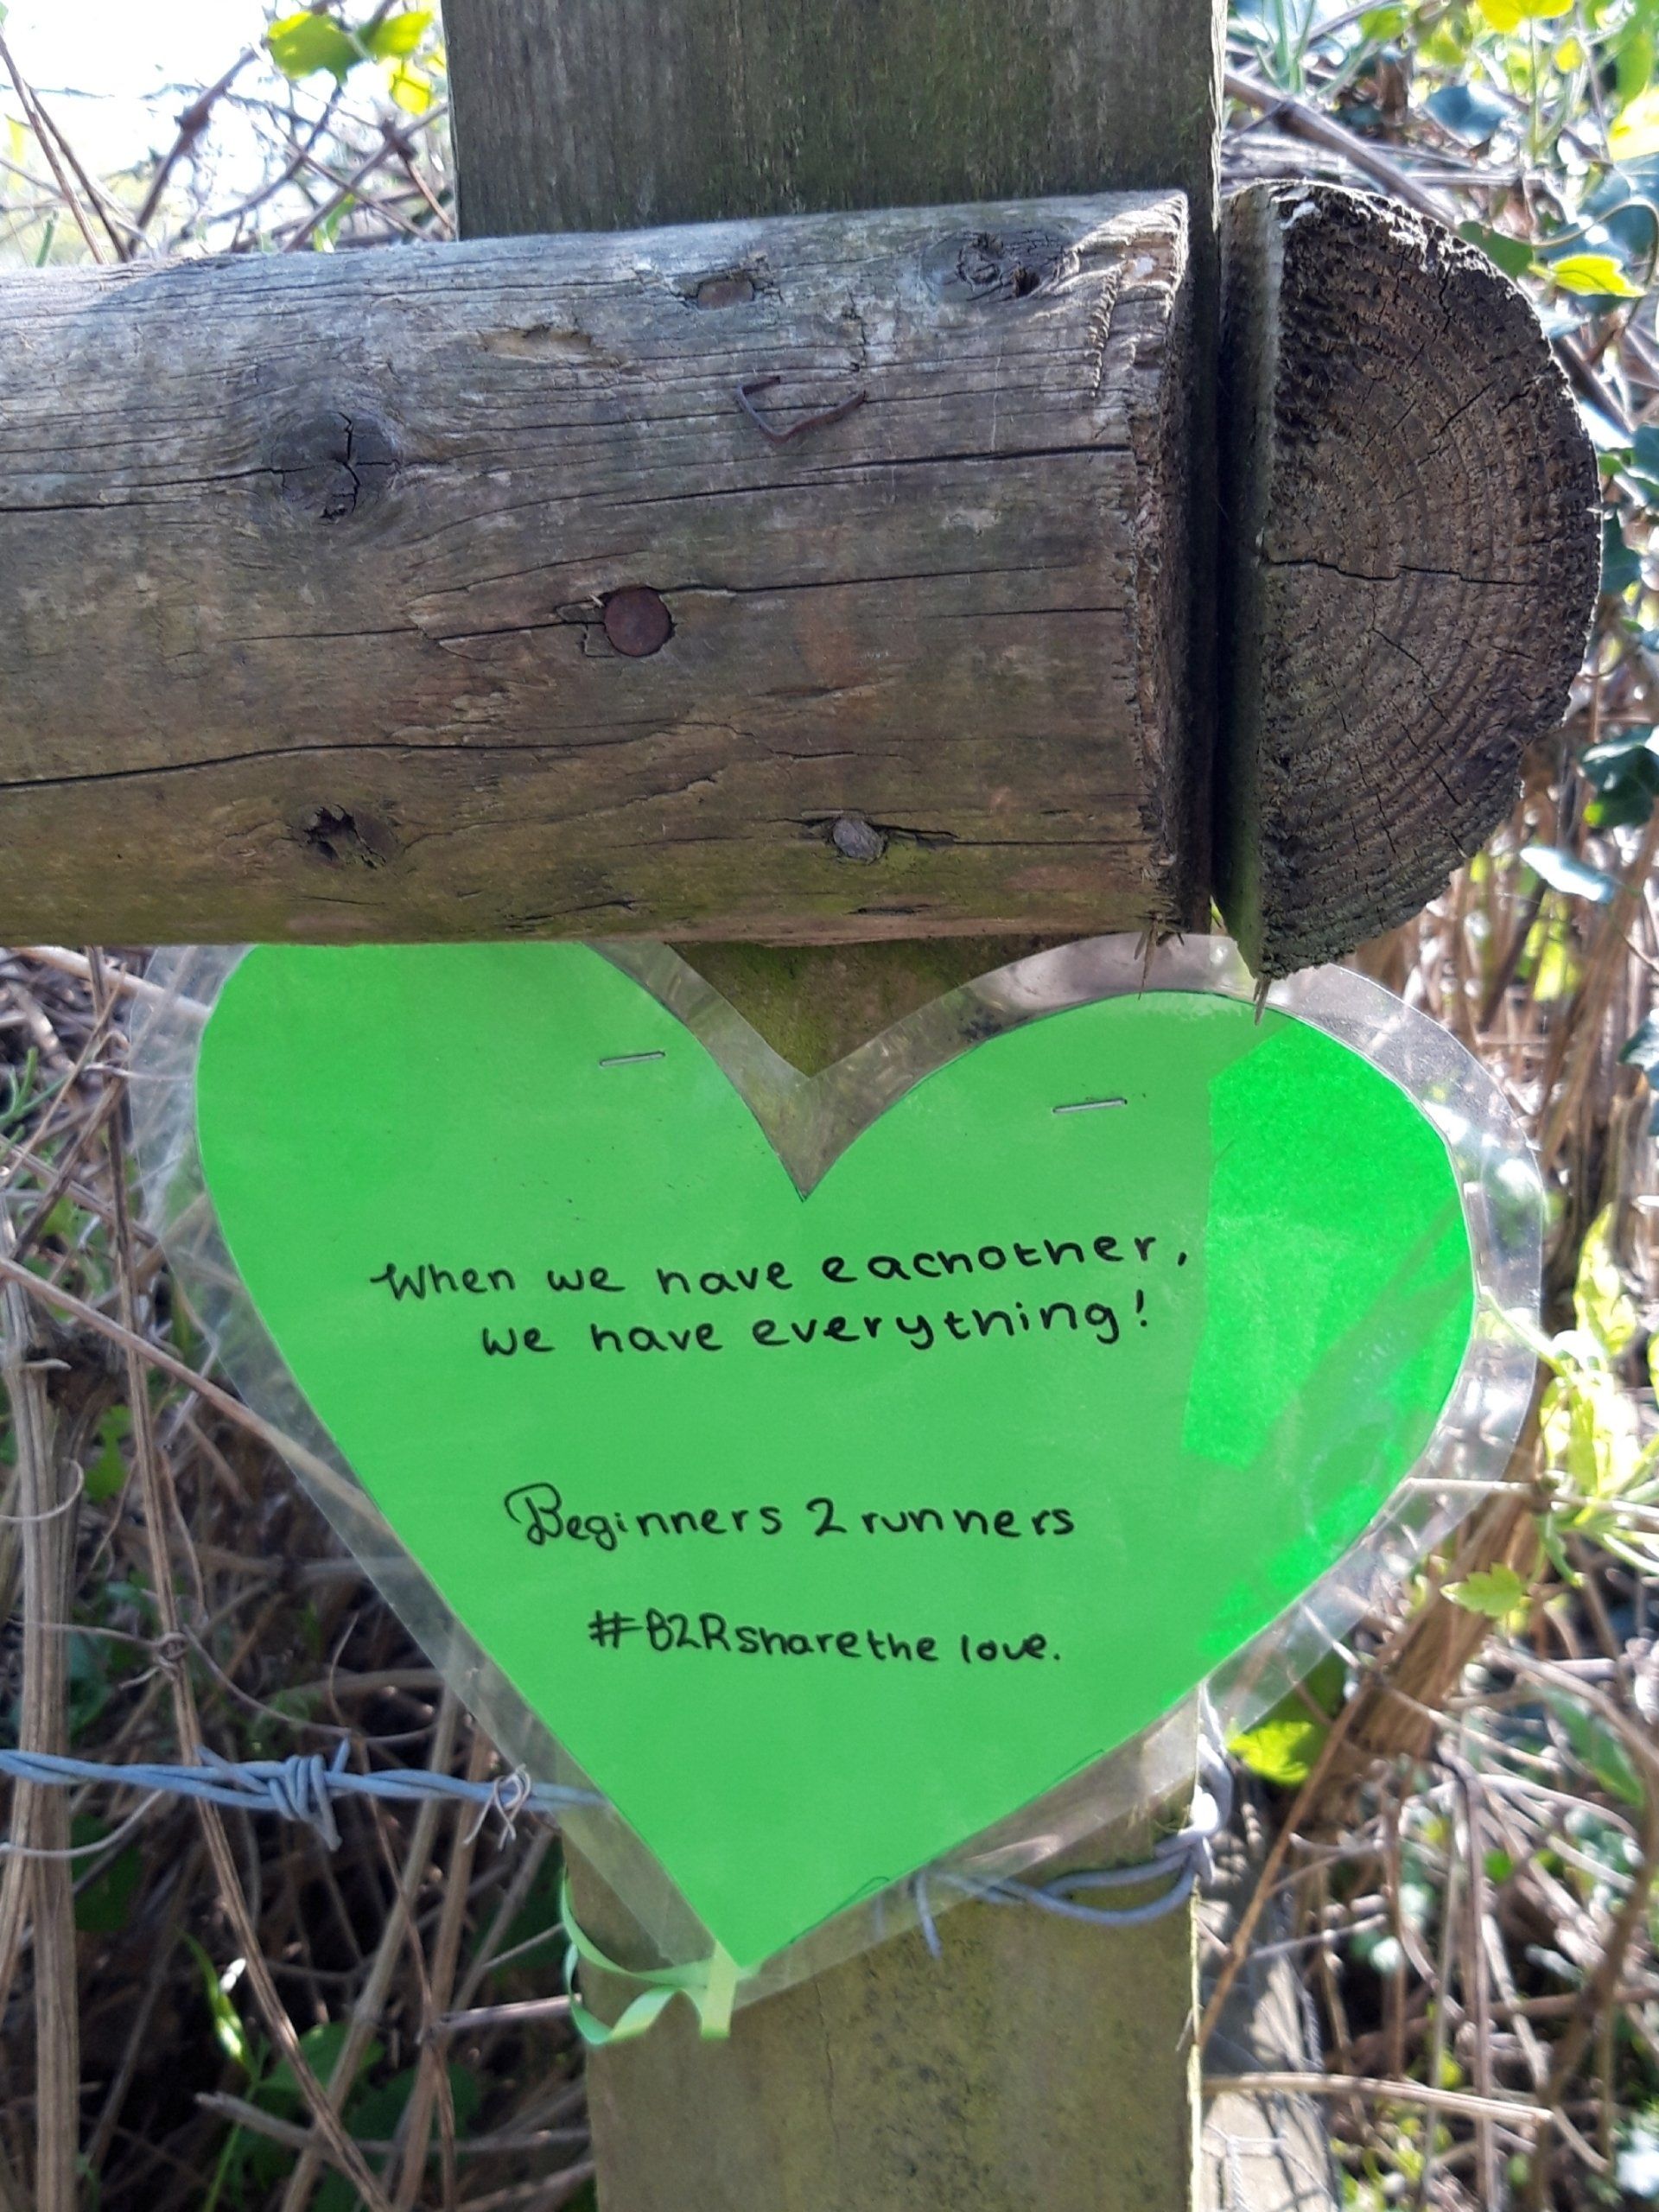 When we have eachother,
we have everything!
Beginners 2 runners
#B2Rsharethe love.